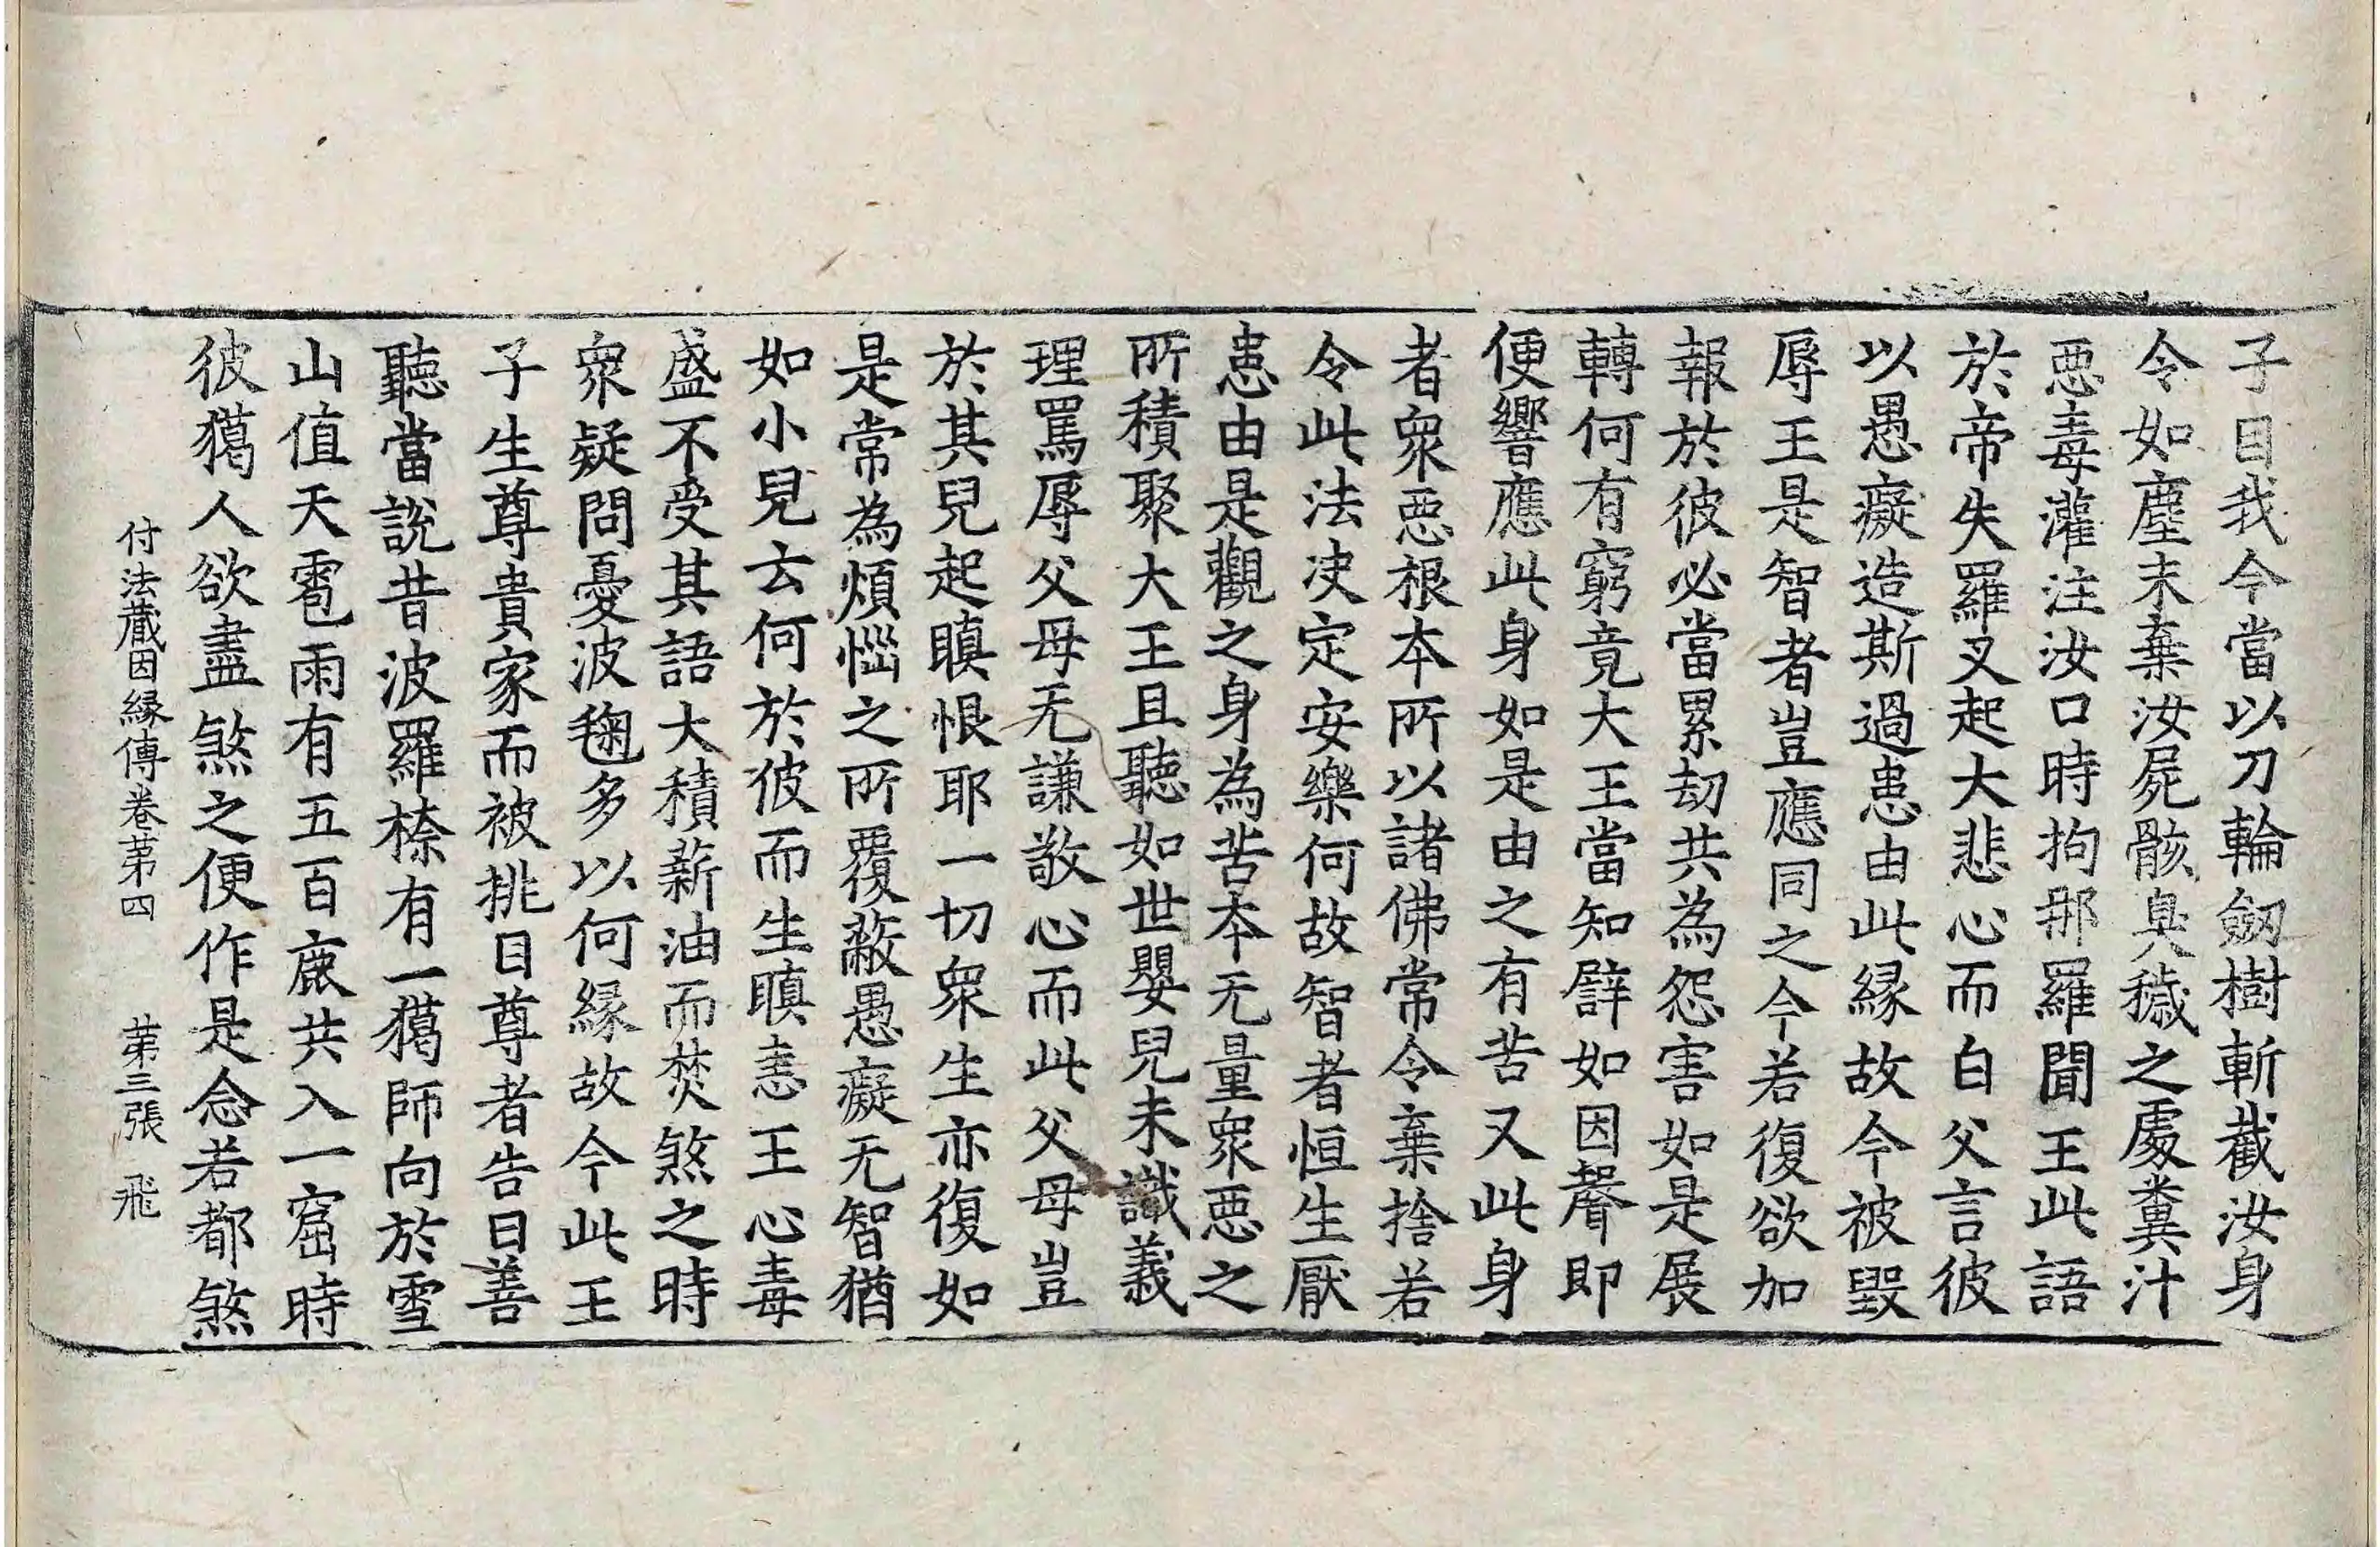 子目我今當以刀輪劒樹斬截汝身
令如塵末棄汝屍骸臭穢之處糞汁
惡毒灌注汝口時拘那羅聞王此語
於帝失羅叉起大悲心而白父言彼
以愚癡造斯過患由此緣故今被毀
辱王是智者豈應同之今若復欲加
報於彼必當累劫共為怨害如是展
轉何有窮竟大王當知譬如因聲即
便響應此身如是由之有苦又此身
者衆惡根本所以諸佛常令棄捨若
令此法决定安樂何故智者恒生厭
患由是觀之身為苦本无量衆惡之
所積聚大王且聽如世嬰兒未識義
理罵辱父母无謙敬心而此父母豈
於其兒起瞋恨耶一切衆生亦復如
是常為煩惱之所覆蔽愚癡无智猶
如小兒云何於彼而生瞋恚王心毒
盛不受其語大積薪油而焚煞之時
衆疑問憂波毱多以何緣故今此王
子生尊貴家而被挑目尊者告曰善
聽當說昔波羅㮈有一獦師向於雪
山值天雹雨有五百鹿共入一窟時
彼獦人欲盡煞之便作是念若都煞
付法藏因緣傳卷第四　第三張　飛